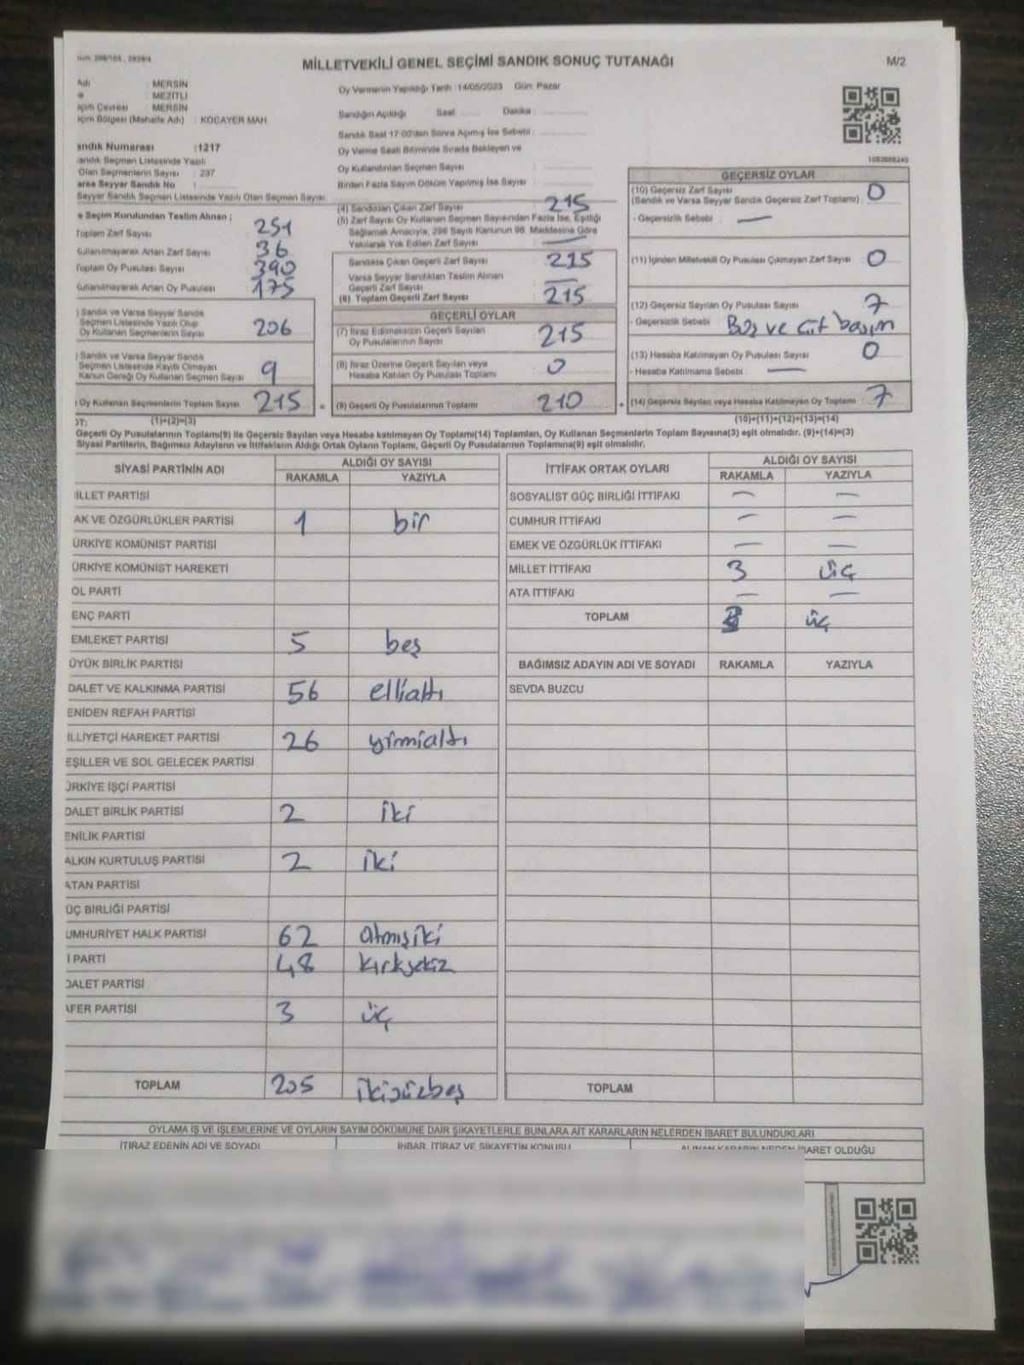 MİLLETVEKİLİ GENEL SEÇİMİ SANDIK SONUÇ TUTANAĞI
M/2
Adı : MERSİN
: MEZİTLİ
: MERSİN
(Mahalle Adı) : KOCAYER MAH
andık Numarası :1217
andık Seçmen Listesinde Yazılı
Olan Seçmenlerin Sayısı : 237
arsa Seyyar Sandık No
Seyyar Sandık Seçmen Listesinde Yazılı Olan Seçmen Sayısı
Oy Vermenin Yapıldığı Tarih :14/05/2023 Gün: Pazar
Sandığın Açıldığı Saat Dakika
Sandık Saat 17:00'dan Sonra Açılmış İse Sebebi
Oy Verme Saati Bitiminde Sırada Bekleyen ve
Oy Kullandırılan Seçmen Sayısı
Birden Fazla Sayım Döküm Yapılmış İse Sayısı
e Seçim Kurulundan Teslim Alınan ;
Toplam Zarf Sayısı 251
Kullanılmayarak Artan Zarf Sayısı 36
Toplam Oy Pusulası Sayısı 390
Kullanılmayarak Artan Oy Pusulası 175
) Sandık ve Varsa Seyyar Sandık
Seçmen Listesinde Yazılı Olup
Oy Kullanan Seçmenlerin Sayısı 206
) Sandık ve Varsa Seyyar Sandık
Seçmen Listesinde Kaydı Olmayan
Kanun Gereği Oy Kullanan Seçmen Sayısı 9
) Oy Kullanan Seçmenlerin Toplam Sayısı 215
(1)+(2)=(3)
(4) Sandıktan Çıkan Zarf Sayısı 215
(5) Zarf Sayısı Oy Kullanan Seçmen Sayısından Fazla İse, Eşitliği
Sağlamak Amacıyla, 298 Sayılı Kanunun 98. Maddesine Göre
Yakılarak Yok Edilen Zarf Sayısı —
Sandıkta Çıkan Geçerli Zarf Sayısı 215
Varsa Seyyar Sandıktan Teslim Alınan
Geçerli Zarf Sayısı —
(6) Toplam Geçerli Zarf Sayısı 215
GEÇERLİ OYLAR
(7) İtiraz Edilmeksizin Geçerli Sayılan
Oy Pusulalarının Sayısı 215
(8) İtiraz Üzerine Geçerli Sayılan veya
Hesaba Katılan Oy Pusulası Toplamı 0
= (9) Geçerli Oy Pusulalarının Toplamı 210
GEÇERSİZ OYLAR
(10) Geçersiz Zarf Sayısı 0
(Sandık ve Varsa Seyyar Sandık Geçersiz Zarf Toplamı)
- Geçersizlik Sebebi —
(11) İçinden Milletvekili Oy Pusulası Çıkmayan Zarf Sayısı 0
(12) Geçersiz Sayılan Oy Pusulası Sayısı 7
- Geçersizlik Sebebi Boş ve çift basım
(13) Hesaba Katılmayan Oy Pusulası Sayısı 0
- Hesaba Katılmama Sebebi —
+ (14) Geçersiz Sayılan veya Hesaba Katılmayan Oy Toplamı 7
(10)+(11)+(12)+(13)=(14)
OT;
Geçerli Oy Pusulalarının Toplamı(9) ile Geçersiz Sayılan veya Hesaba katılmayan Oy Toplamı(14) Toplamları, Oy Kullanan Seçmenlerin Toplam Sayısına(3) eşit olmalıdır. (9)+(14)=(3)
Siyasi Partilerin, Bağımsız Adayların ve İttifakların Aldığı Ortak Oyların Toplamı, Geçerli Oy Pusulalarının Toplamına(9) eşit olmalıdır.
SİYASİ PARTİNİN ADI ALDIĞI OY SAYISI
RAKAMLA YAZIYLA
İLLET PARTİSİ
AK VE ÖZGÜRLÜKLER PARTİSİ 1 bir
ÜRKİYE KOMÜNİST PARTİSİ
ÜRKİYE KOMÜNİST HAREKETİ
OL PARTİ
ENÇ PARTİ
EMLEKET PARTİSİ 5 beş
ÜYÜK BİRLİK PARTİSİ
DALET VE KALKINMA PARTİSİ 56 ellialtı
ENİDEN REFAH PARTİSİ
İLLİYETÇİ HAREKET PARTİSİ 26 yirmialtı
EŞİLLER VE SOL GELECEK PARTİSİ
ÜRKİYE İŞÇİ PARTİSİ
DALET BİRLİK PARTİSİ 2 iki
ENİLİK PARTİSİ
ALKIN KURTULUŞ PARTİSİ 2 iki
ATAN PARTİSİ
ÜÇ BİRLİĞİ PARTİSİ
UMHURİYET HALK PARTİSİ 62 atmışiki
İ PARTİ 48 kırksekiz
DALET PARTİSİ
AFER PARTİSİ 3 üç
TOPLAM 205 ikiyüzbeş
İTTİFAK ORTAK OYLARI ALDIĞI OY SAYISI
RAKAMLA YAZIYLA
SOSYALİST GÜÇ BİRLİĞİ İTTİFAKI — —
CUMHUR İTTİFAKI — —
EMEK VE ÖZGÜRLÜK İTTİFAKI — —
MİLLET İTTİFAKI 3 üç
ATA İTTİFAKI — —
TOPLAM 3 üç
BAĞIMSIZ ADAYIN ADI VE SOYADI RAKAMLA YAZIYLA
SEVDA BUZCU
TOPLAM
OYLAMA İŞ VE İŞLEMLERİNE VE OYLARIN SAYIM DÖKÜMÜNE DAİR ŞİKAYETLERLE BUNLARA AİT KARARLARIN NELERDEN İBARET BULUNDUKLARI
İTİRAZ EDENİN ADI VE SOYADI İHBAR, İTİRAZ VE ŞİKAYETİN KONUSU İBARET OLDUĞU